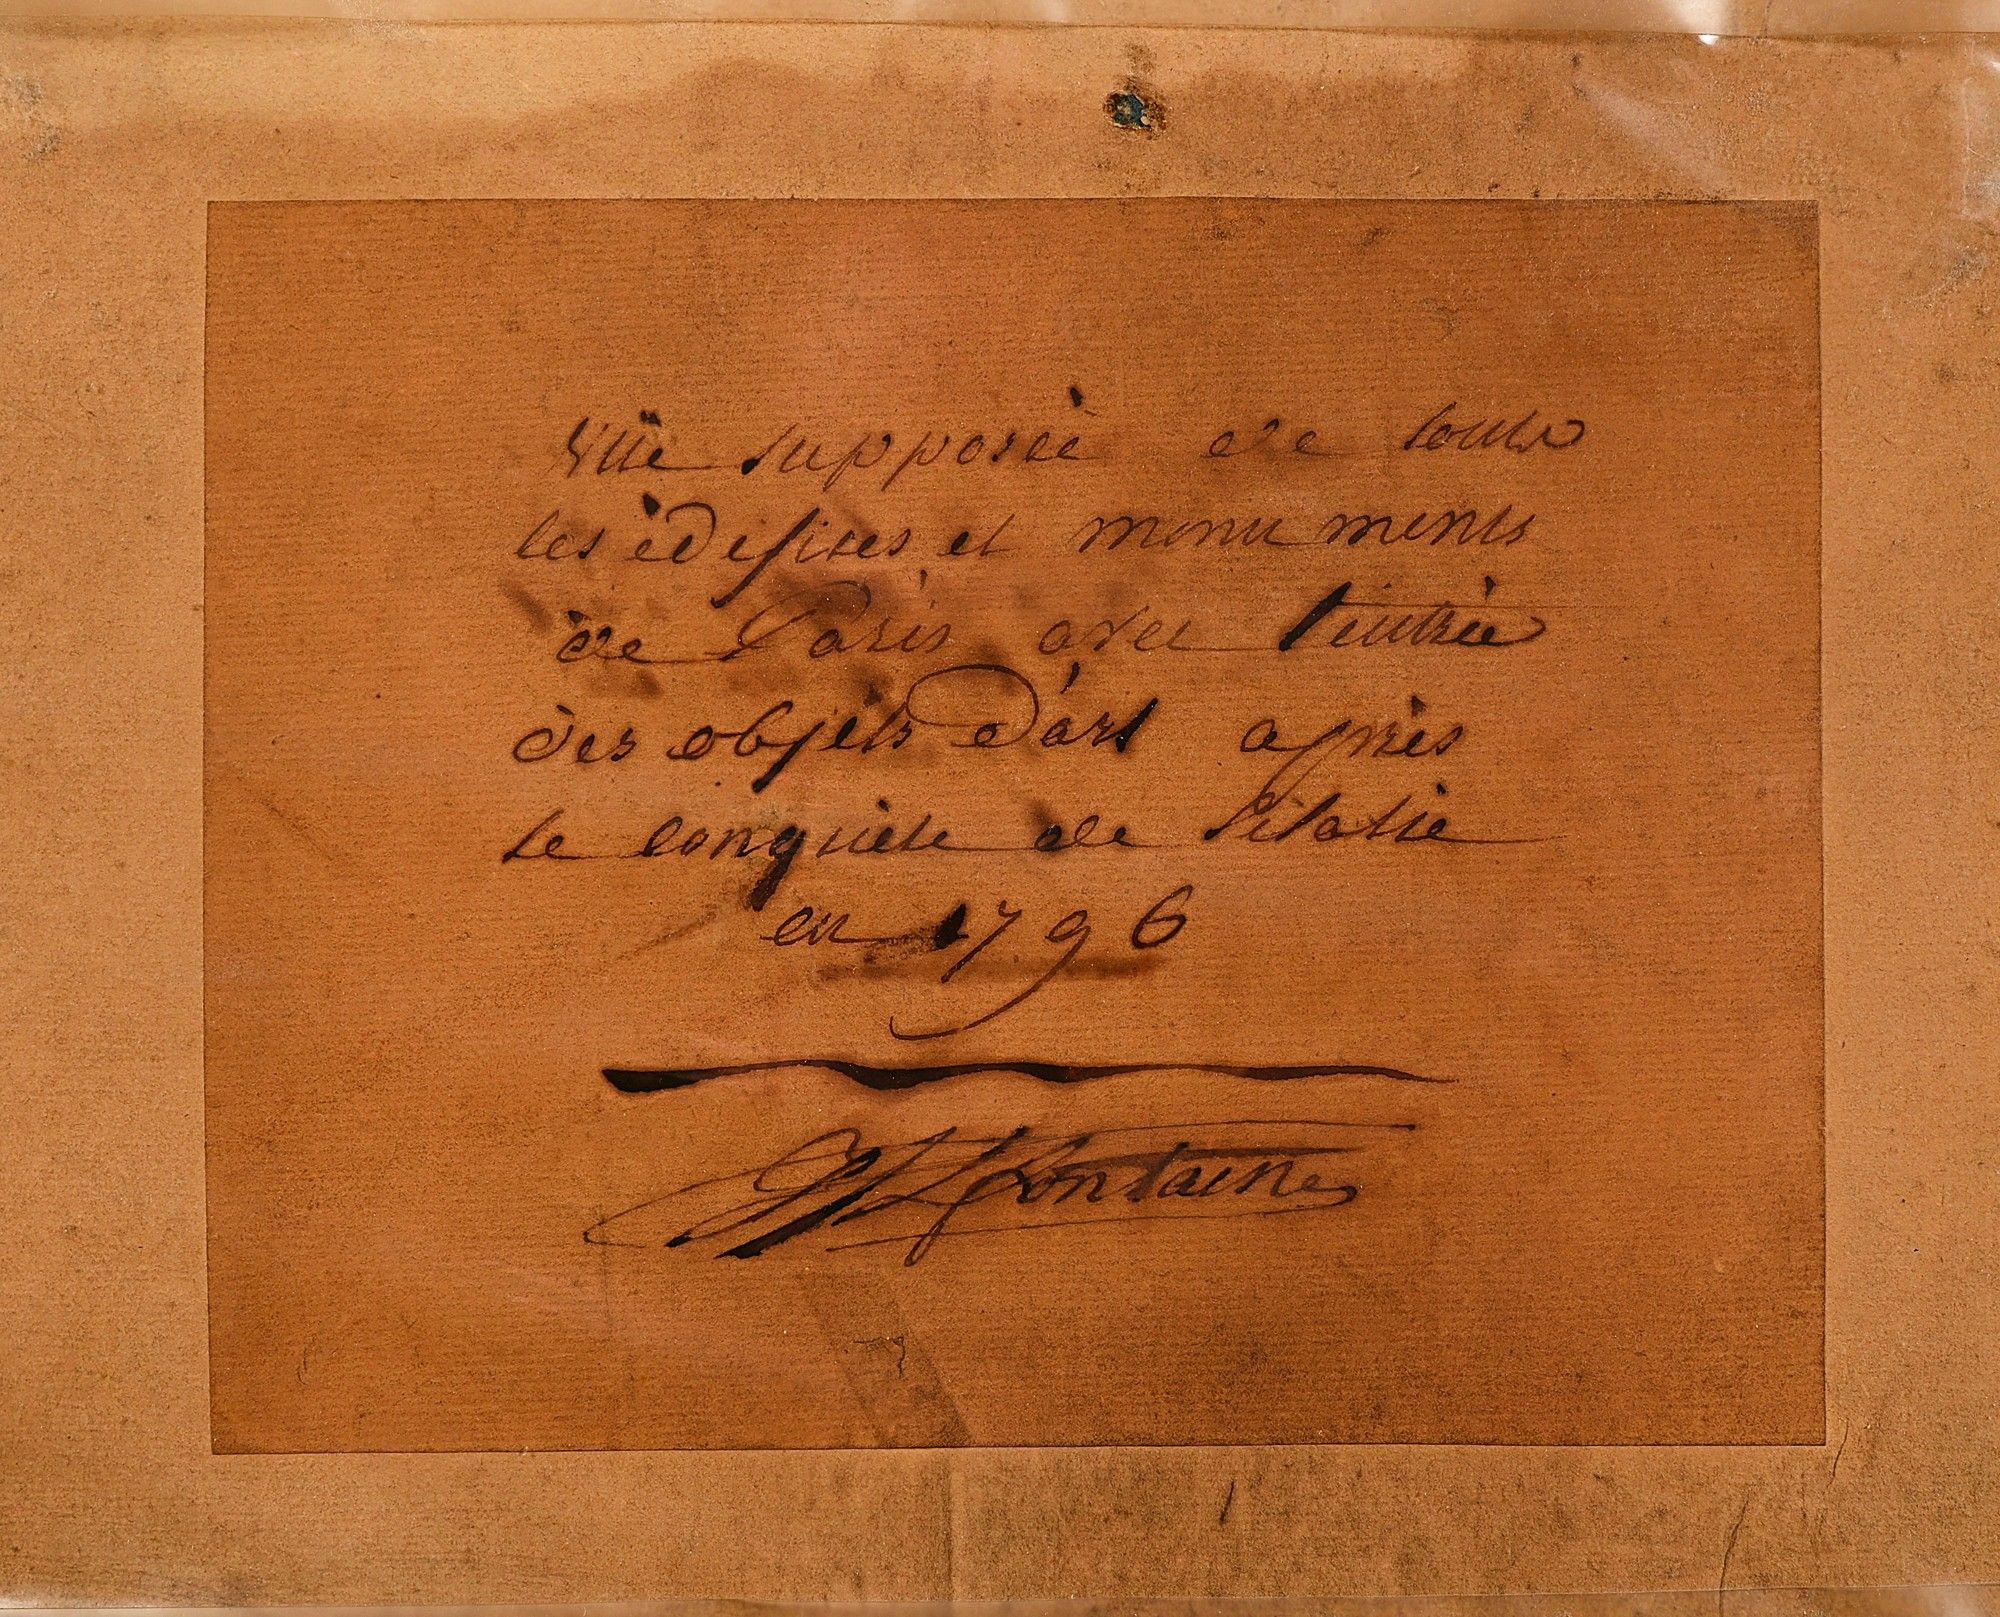 Vüe supposèe de touts
les èdefices et monuments
de Paris avec l'entrèe
des objets d'art après
le conquète de l'itatie
en 1796
Fontaine